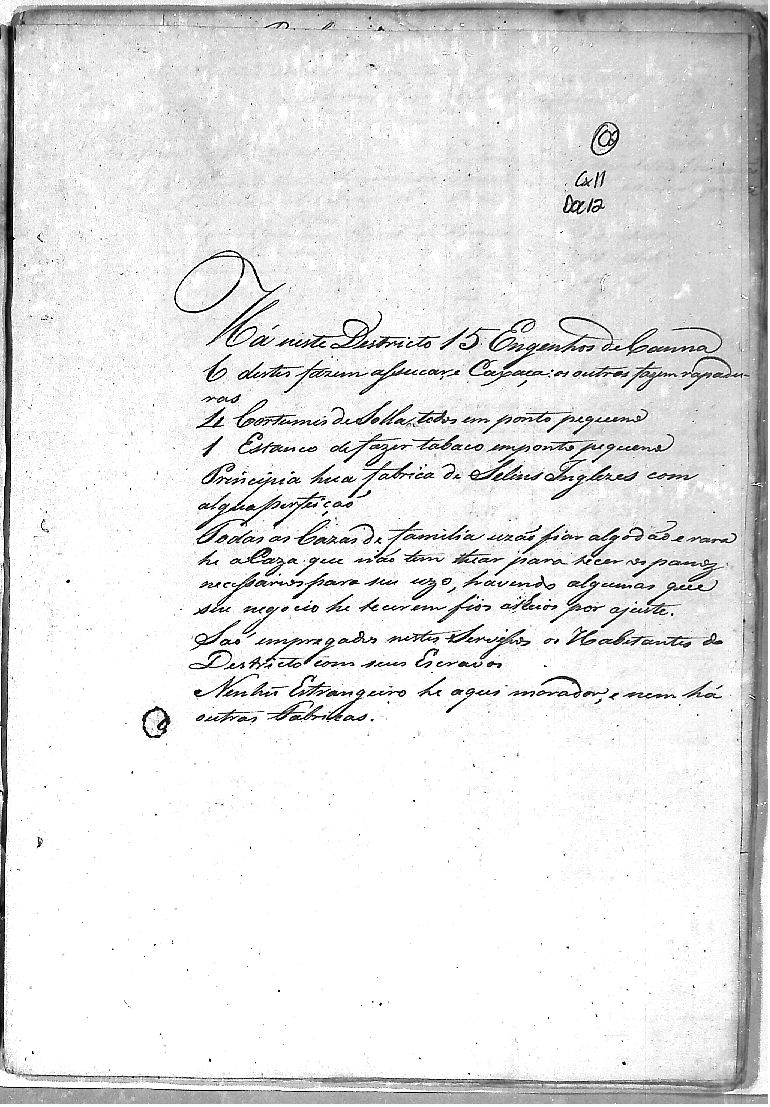 Cx 11
Doc 12
Há neste Destricto 15 Engenhos de Canna
6 destes fazem assucar, e Caxaça: os outros fazem rapadu-
ras
4 Cortumes de Solla, todos em ponto pequeno
1 Estanco de fazer tabaco em ponto pequeno
Principia hua fabrica de Selins Inglezes com
algua perfeiçaõ
Todas as Cazas de familia uzaõ fiar algodaõ e rara
he a Caza que naõ tem thear para tecer os panos
necessarios para seu uzo, havendo algumas que
seu negocio he tecerem fios alheios por ajuste.
Saõ empregados nestes Serviços os Habitantes do
Destricto com seus Escravos
Nenhũ Estrangeiro he aqui morador, e nem há
outras Fabricas.